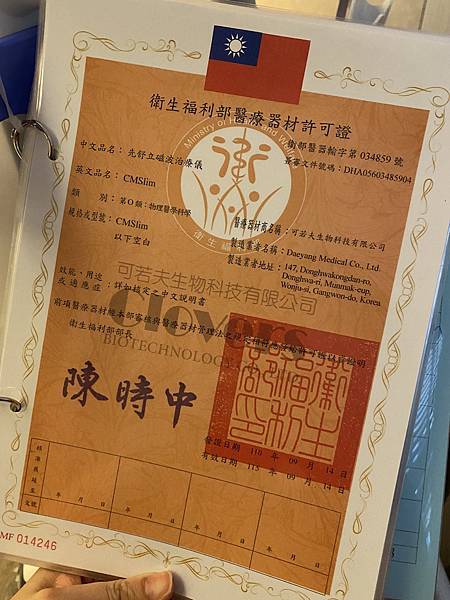 衛生福利部醫療器材許可證
衛部醫器輸字第 034859 號
簽審文件號碼：DHA05603485904
中文品名：先舒立磁波治療儀
英文品名：CMSlim
類　別：第O類：物理醫學科學
規格或型號：CMSlim
以下空白
醫療器材商名稱：可若夫生物科技有限公司
製造業者名稱：Daeyang Medical Co., Ltd.
製造業者地址：147, Donghwakongdan-ro,
Donghwa-ri, Munmak-eup,
Wonju-si, Gangwon-do, Korea
效能、用途
或適應症：詳如核定之中文說明書
可若夫生物科技有限公司
Clovers
BIOTECHNOLOGY
前項醫療器材經本部審核與醫療器材管理法之規定相符應發給許可證以資證明
衛生福利部部長
陳時中
衛生福利部印
發證日期 110 年 09 月 14 日
有效日期 115 年 09 月 14 日
核准展延至
年 月 日
年 月 日
年 月 日
年 月 日
文號
MF 014246
Ministry of Health and Welfare
衛生福利部